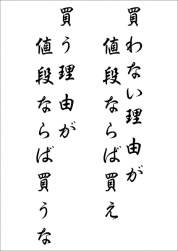 買わない理由が
値段ならば買え
買う理由が
値段ならば買うな